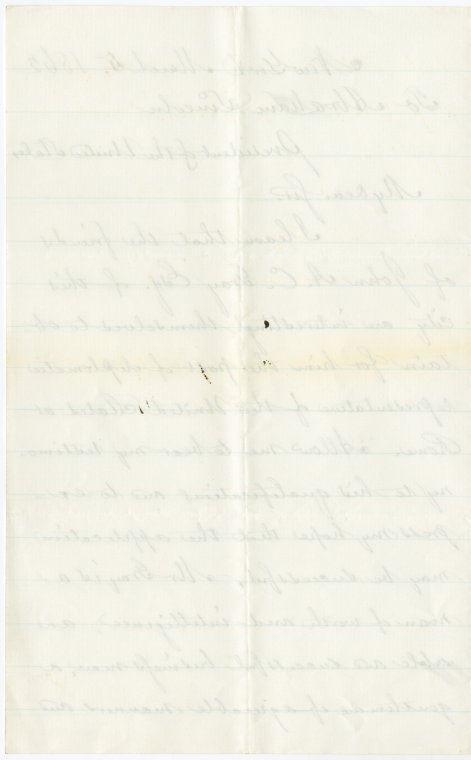 New York March 5, 1863
To Abraham Lincoln
President of the United States
My dear Sir
I learn that the friends
of John A. C. Gray Esq. of this
city are interesting themselves to ob-
tain for him the post of diplomatic
representative of the United States at
Rome. Allow me to bear my testimo-
ny to his qualifications and to ex-
press my hope that the application
may be successful. Mr. Gray is a
man of worth and intelligence, an
able and successful business man, a
gentleman of agreeable manners and